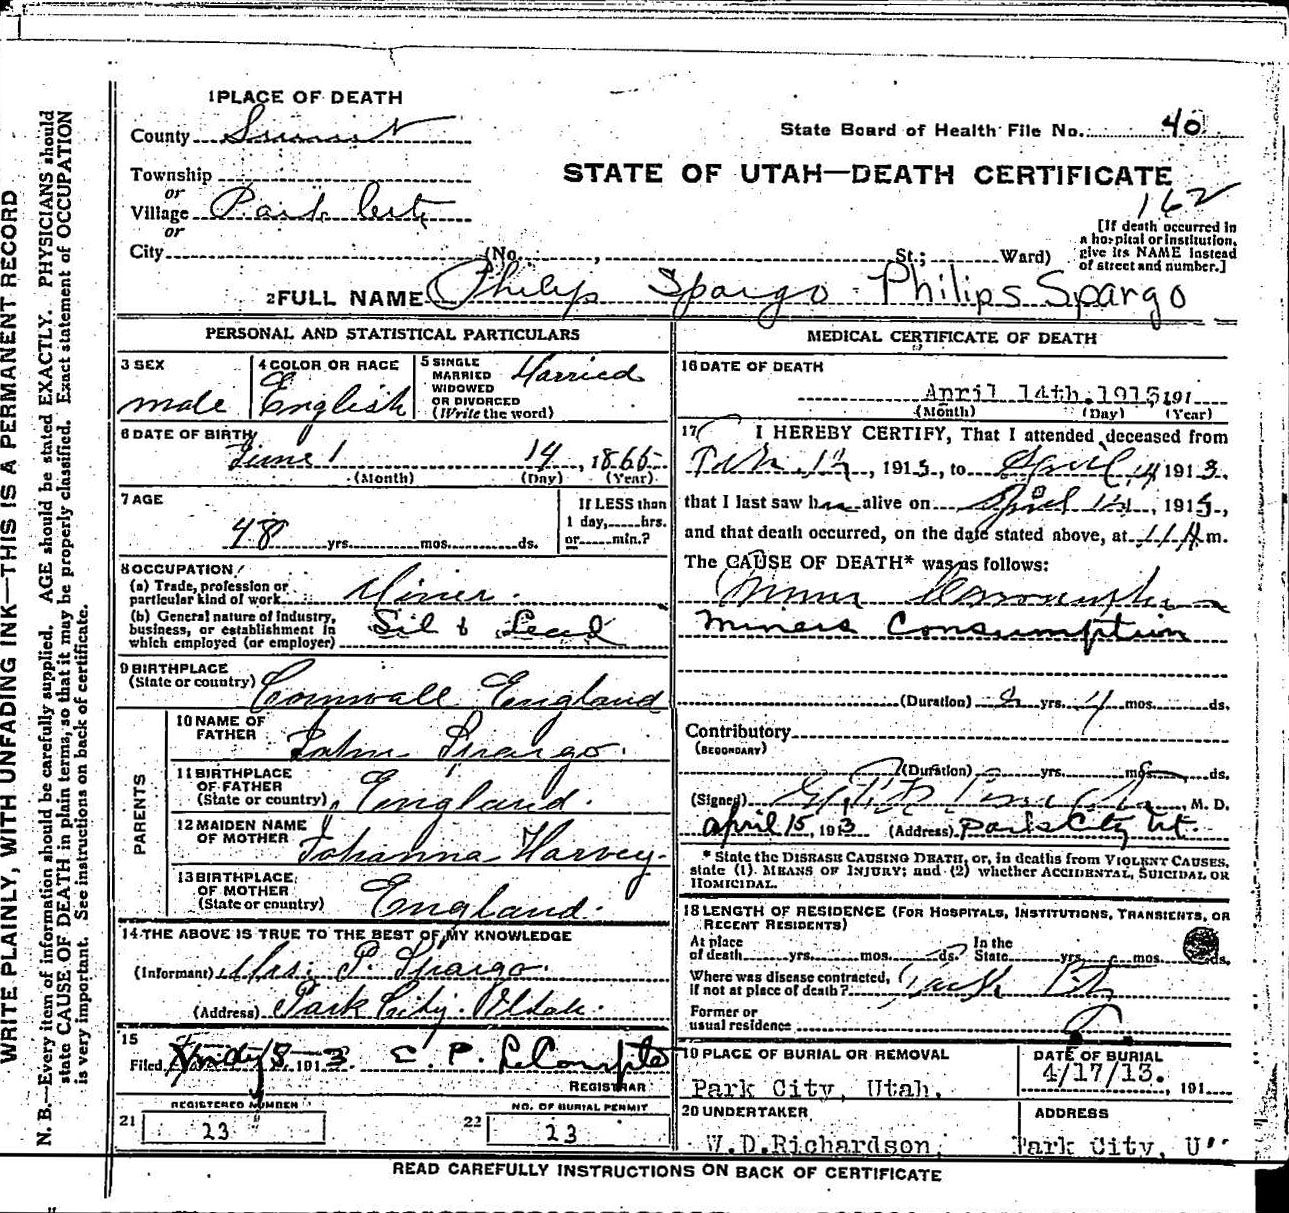 WRITE PLAINLY, WITH UNFADING INK—THIS IS A PERMANENT RECORD
N. B.—Every item of information should be carefully supplied. AGE should be stated EXACTLY. PHYSICIANS should
state CAUSE OF DEATH in plain terms, so that it may be properly classified. Exact statement of OCCUPATION
is very important. See instructions on back of certificate.
1 PLACE OF DEATH
County Summit
State Board of Health File No. 40
Township
or
Village Park City
or
City (No. , St.; Ward)
STATE OF UTAH—DEATH CERTIFICATE
162
[If death occurred in
a hospital or institution,
give its NAME instead
of street and number.]
2 FULL NAME Philips Spargo - Philips Spargo
PERSONAL AND STATISTICAL PARTICULARS
3 SEX
male
4 COLOR OR RACE
English
5 SINGLE
MARRIED
WIDOWED
OR DIVORCED
(Write the word)
Married
6 DATE OF BIRTH
June 14, 1865
(Month) (Day) (Year)
7 AGE
48 yrs. mos. ds.
If LESS than
1 day, hrs.
or min.?
8 OCCUPATION
(a) Trade, profession or
particular kind of work Miner.
(b) General nature of industry,
business, or establishment in
which employed (or employer)
Sil & Lead
9 BIRTHPLACE
(State or country) Cornwall England
PARENTS
10 NAME OF
FATHER John Spargo.
11 BIRTHPLACE
OF FATHER
(State or country) England.
12 MAIDEN NAME
OF MOTHER Johanna Harvey.
13 BIRTHPLACE
OF MOTHER
(State or country) England.
14 THE ABOVE IS TRUE TO THE BEST OF MY KNOWLEDGE
(Informant) Mrs. P. Spargo.
(Address) Park City. Utah.
15
Filed 8-, 1913. C. P. LeCompte
REGISTRAR
REGISTERED NUMBER
21 23
NO. OF BURIAL PERMIT
22 23
MEDICAL CERTIFICATE OF DEATH
16 DATE OF DEATH
April 14th.1913. 191
(Month) (Day) (Year)
17 I HEREBY CERTIFY, That I attended deceased from
, 1913, to April 14 1913.
that I last saw him alive on April 14, 1913,
and that death occurred, on the date stated above, at 11 A m.
The CAUSE OF DEATH* was as follows:
Miners Consumption
Miners Consumption
(Duration) yrs. 4 mos. ds.
Contributory
(SECONDARY)
(Duration) yrs. mos. ds.
(Signed) , M. D.
April 15, 1913 (Address) Park City Ut.
* State the DISEASE CAUSING DEATH, or, in deaths from VIOLENT CAUSES,
state (1) MEANS OF INJURY; and (2) whether ACCIDENTAL, SUICIDAL OR
HOMICIDAL.
18 LENGTH OF RESIDENCE (FOR HOSPITALS, INSTITUTIONS, TRANSIENTS, OR
RECENT RESIDENTS)
At place
of death yrs. mos. ds.
In the
State yrs. mos. ds.
Where was disease contracted,
If not at place of death? Park City
Former or
usual residence
19 PLACE OF BURIAL OR REMOVAL
Park City, Utah.
DATE OF BURIAL
4/17/13. , 191
20 UNDERTAKER
W.D.Richardson,
ADDRESS
Park City, U
READ CAREFULLY INSTRUCTIONS ON BACK OF CERTIFICATE